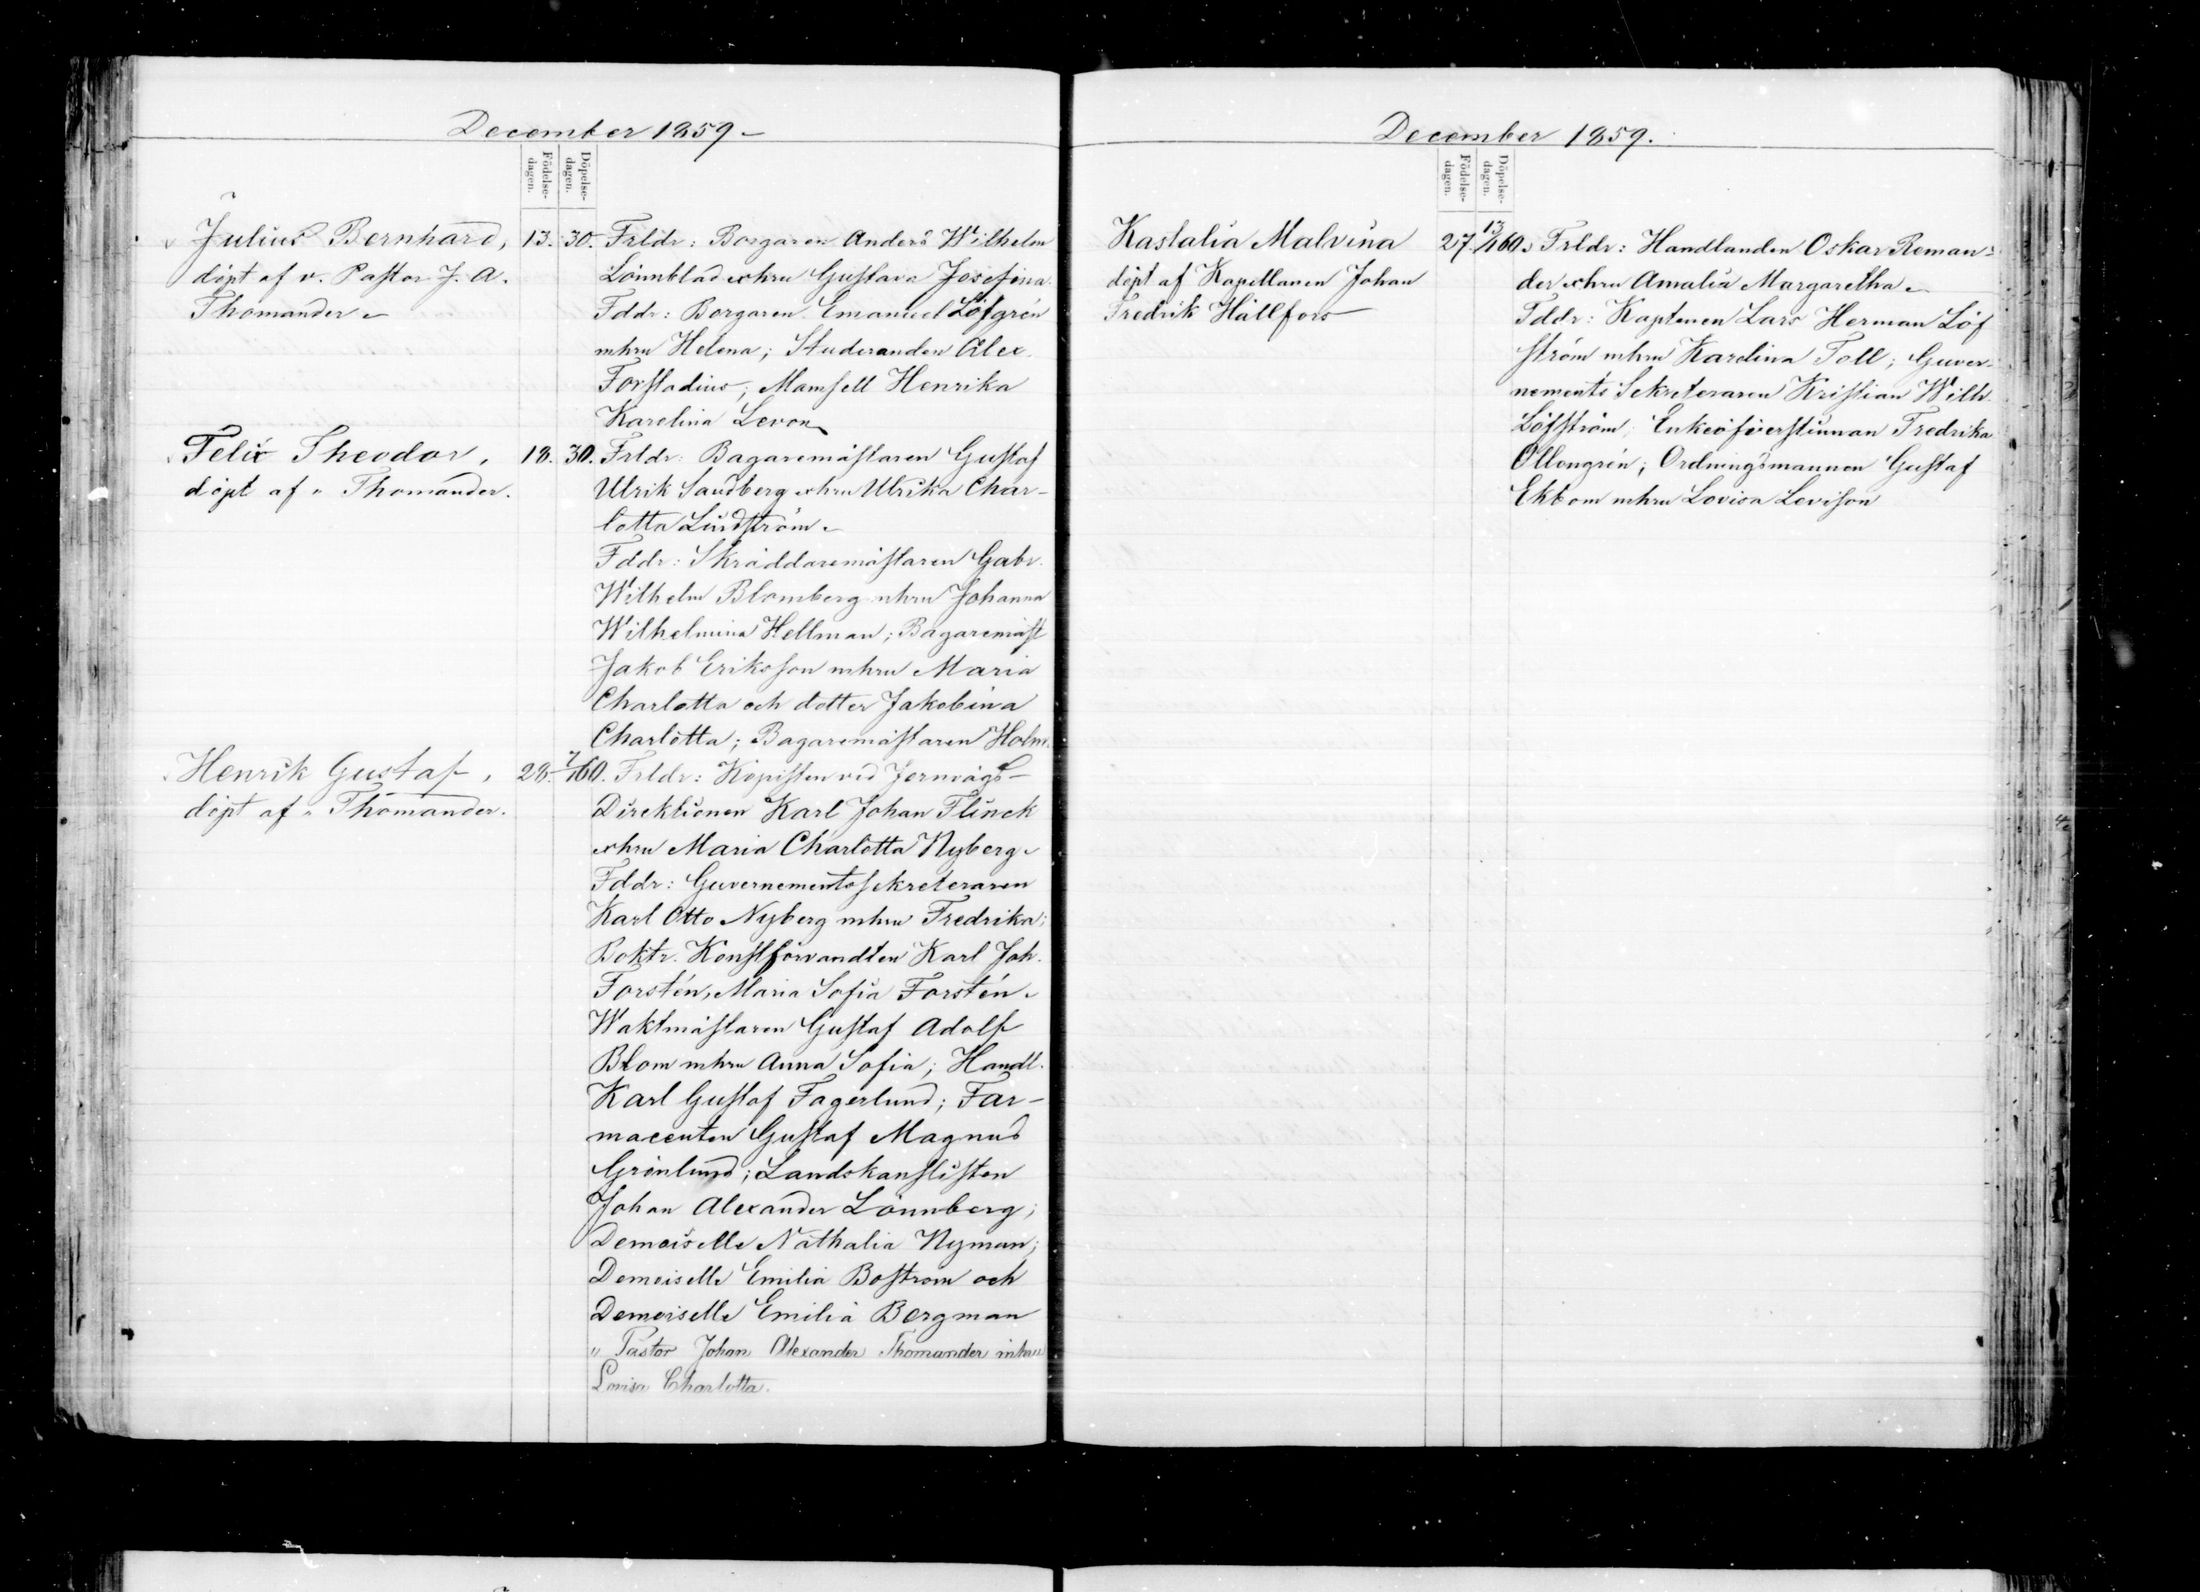 December 1859
Födelse-
dagen.
Döpelse-
dagen.
Julius Bernhard,
döpt af v. Pastor J. A.
Thomander
13. 30. Frldr: Borgaren Anders Wilhelm
Lönnblad o hru Gustava Josefina
Fddr: Borgaren Emanuel Löfgrén
mhru Helena; Studeranden Alex.
Forstadius; Mamsell Henrika
Karolina Levon
Felix Theodor,
döpt af " Thomander.
18. 30. Frldr: Bagaremästaren Gustaf
Ulrik Sandberg o hru Ulrika Char-
lotta Lindström
Fddr: Skräddaremästaren Gabr.
Wilhelm Blomberg mhru Johanna
Wilhelmina Hellman; Bagaremäst
Jakob Eriksson mhru Maria
Charlotta och dotter Jakobina
Charlotta; Bagaremästaren Holm
Henrik Gustaf,
döpt af " Thomander.
28. 7/1 60. Frldr: Kopisten vid Jernvägs-
Direktionen Karl Johan Flinck
o hru Maria Charlotta Nyberg
Fddr: Guvernementssekreteraren
Karl Otto Nyberg mhru Fredrika;
Boktr. Konstförvandten Karl Joh.
Forstén, Maria Sofia Forstén.
Waktmästaren Gustaf Adolf
Blom mhru Anna Sofia; Handl.
Karl Gustaf Fagerlund; Far-
maceuten Gustaf Magnus
Grönlund; Landskanslisten
Johan Alexander Lönnberg;
Demoiselle Nathalia Nyman;
Demoiselle Emilia Bostrom och
Demoiselle Emilia Bergman
" Pastor Johan Alexander Thomander mhru
Lovisa Charlotta.
December 1859.
Födelse-
dagen.
Döpelse-
dagen.
Kastalia Malvina
döpt af Kapellanen Johan
Fredrik Hällfors
27. 13/1 60. Frldr: Handlanden Oskar Reman-
der o hru Amalia Margaretha
Fddr: Kaptenen Lars Herman Löf
ström mhru Karolina Toll; Guver-
nements Sekreteraren Kristian Wilh.
Löfström; Enkeöfverstinnan Fredrika
Ollongrén; Ordningsmannen Gustaf
Ekbom mhru Lovisa Levison